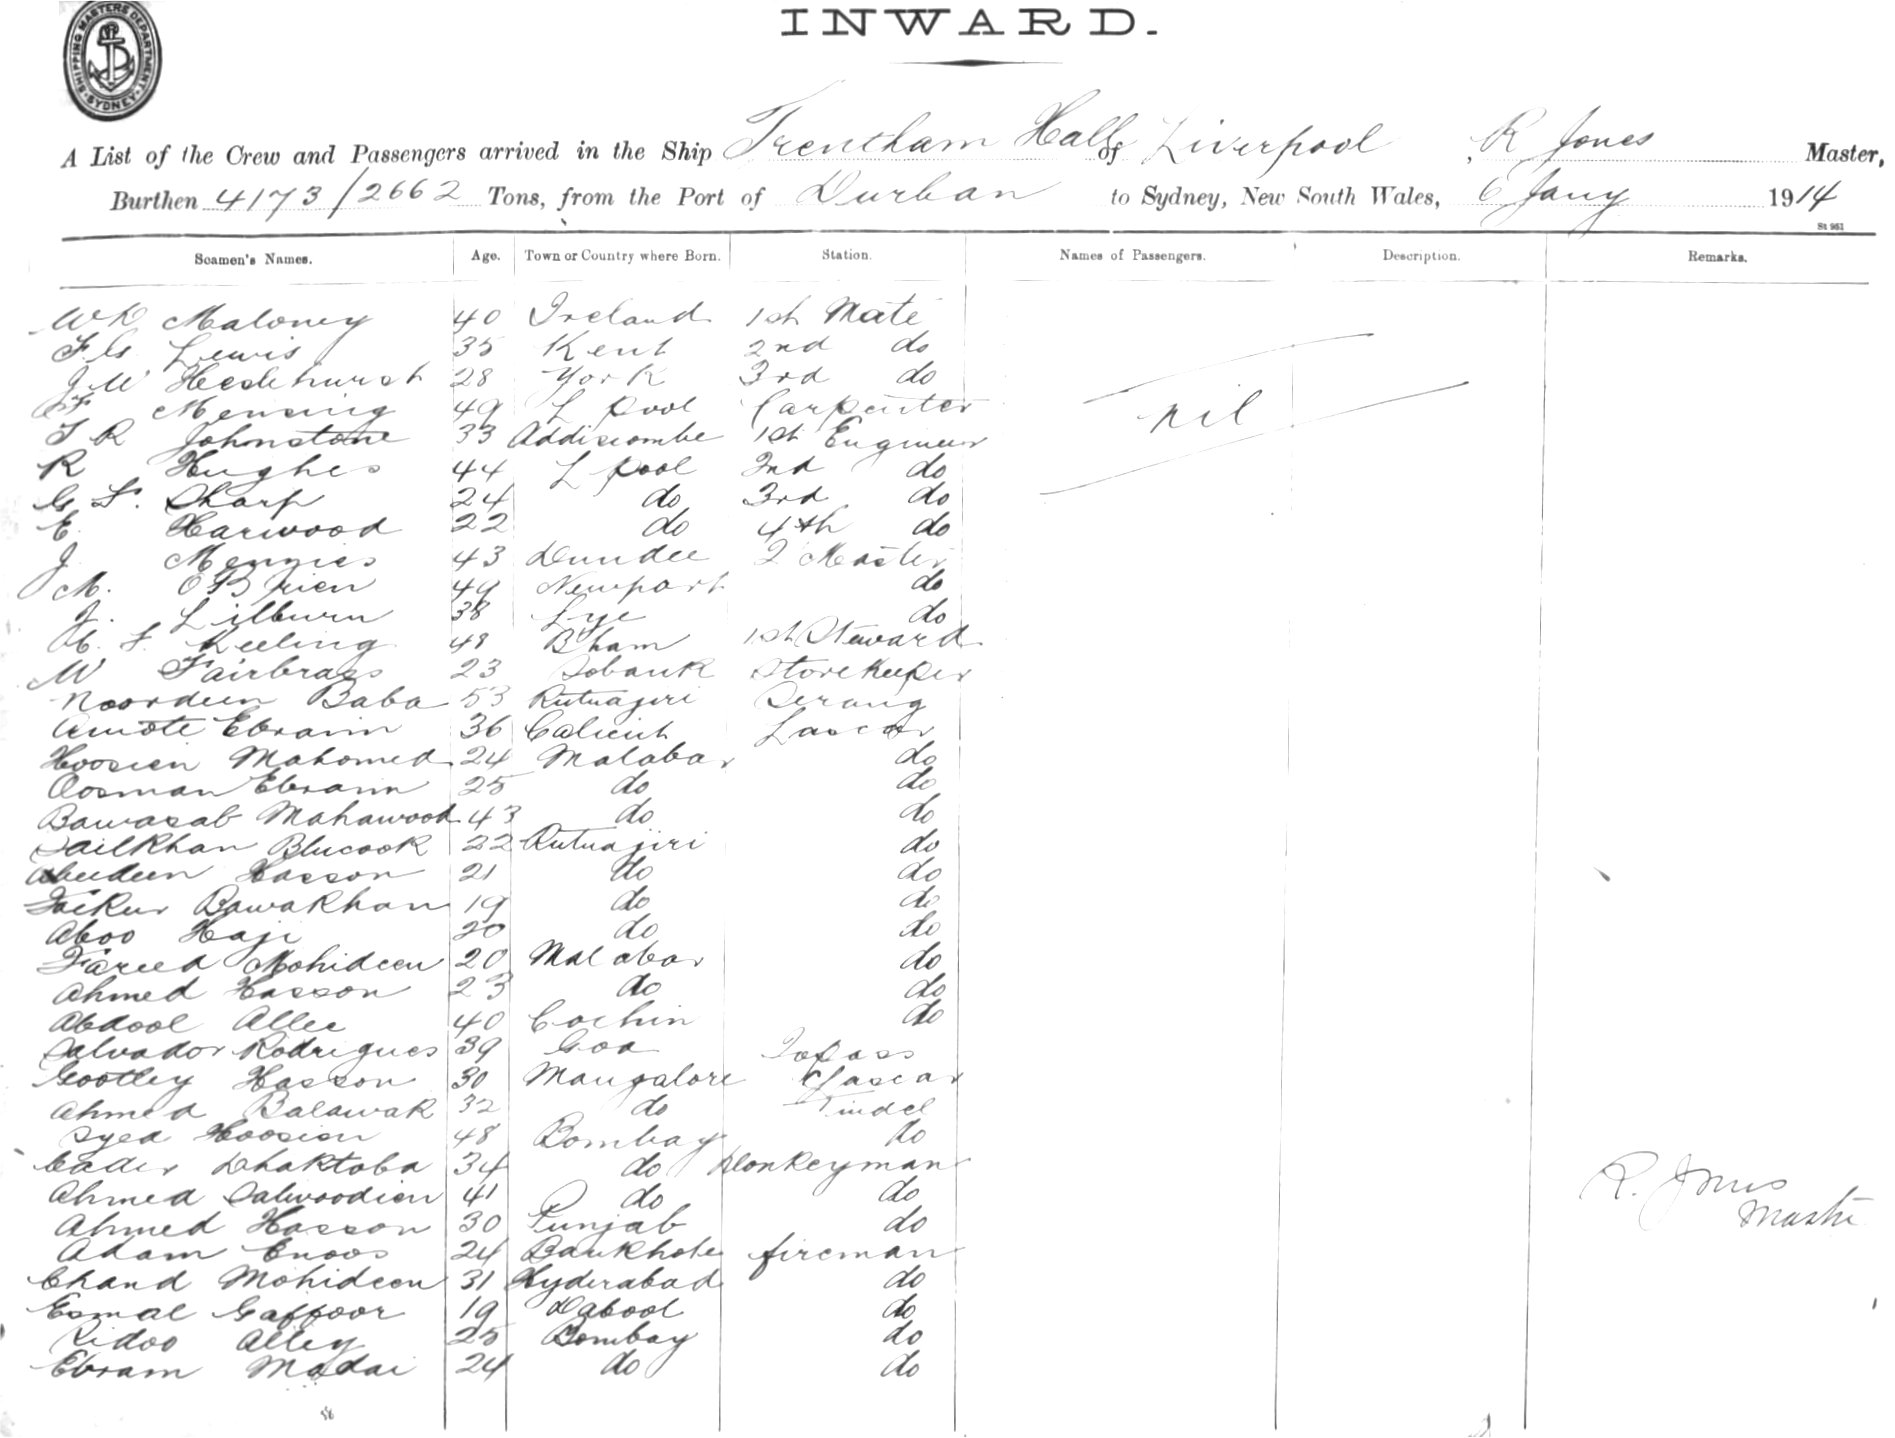 SHIPPING MASTERS DEPARTMENT SYDNEY
INWARD.
A List of the Crew and Passengers arrived in the Ship Trentham Hall of Liverpool , R Jones Master,
Burthen 4173/2662 Tons, from the Port of Durban to Sydney, New South Wales, 6 Jany 1914
St 951
Seamen's Names. Age. Town or Country where Born. Station. Names of Passengers. Description. Remarks.
W R Maloney 40 Ireland 1st Mate
F G Lewis 35 Kent 2nd do
J W Heslehurst 28 York 3rd do
F Mensing 49 L pool Carpenter
nil
T R Johnstone 33 Addiscombe 1st Engineer
R Hughes 44 L pool 2nd do
G F. Sharp 24 do 3rd do
E. Harwood 22 do 4th do
J Mennies 43 Dundee Q Master
M. O'Brien 49 Newport do
J. Lilburn 38 Lye do
F. Keeling 48 B'ham 1st Steward
W Fairbrass 23 Storekeeper
Noordeen Baba 53 Rutnagiri Serang
Ebraim 36 Calicut Lascar
Hoosien Mahomed 24 Malabar do
Oosman Ebraim 25 do do
Bawasab Mahawood 43 do do
Sailkhan Blucook 22 Rutnagiri do
Abeedeen Hasson 21 do do
Fackur Bawakhan 19 do do
Aboo Haji 20 do do
Fareed Mohideen 20 Malabar do
Ahmed Hasson 23 do do
Abdool Allee 40 Cochin do
Salvador Rodrigues 39 Goa Topass
Gootley Hasson 30 Mangalore Lascar
Ahmed Balawak 32 do Tindel
Syed Hoosien 48 Bombay do
Cader Dhaktoba 34 do Donkeyman
Ahmed Salwoodien 41 do do
R. Jones
Master
Ahmed Hasson 30 Punjab do
Adam Enoos 24 Bankhote fireman
Chand Mohideen 31 Hyderabad do
Esmal Gaffoor 19 Dabool do
Kidoo Alley 25 Bombay do
Ebram Madai 24 do do